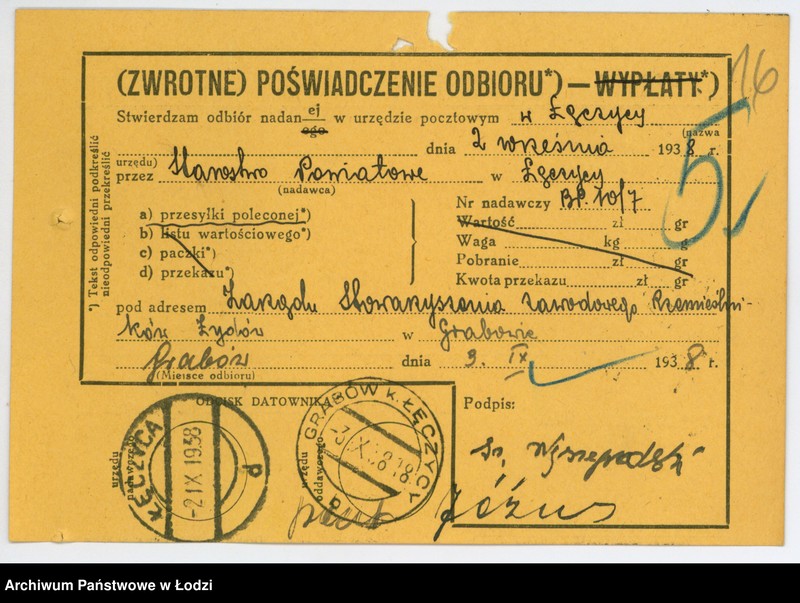 16
(ZWROTNE) POŚWIADCZENIE ODBIORU*) — WYPŁATY*)
Stwierdzam odbiór nadanej ego w urzędzie pocztowym w Łęczycy
(nazwa
urzędu) dnia 2 września 1938 r.
przez Starostwo Powiatowe w Łęczycy
(nadawca)
5
*) Tekst odpowiedni podkreślić
nieodpowiedni przekreślić
a) przesyłki poleconej*)
b) listu wartościowego*)
c) paczki*)
d) przekazu*)
Nr nadawczy BP. 10/7
Wartość zł gr
Waga kg gr
Pobranie zł gr
Kwota przekazu zł gr
pod adresem Zarządu Stowarzyszenia Zawodowego Rzemieślni-
ków Żydów w Grabowie
Grabów dnia 3. IX 1938 r.
(Miejsce odbioru)
ODCISK DATOWNIKA
urzędu
nadawczego
ŁĘCZYCA
-2 IX 1938
urzędu
oddawczego
GRABÓW K. ŁĘCZYCY
-3.IX.38.18
Podpis:
Józus
Archiwum Państwowe w Łodzi